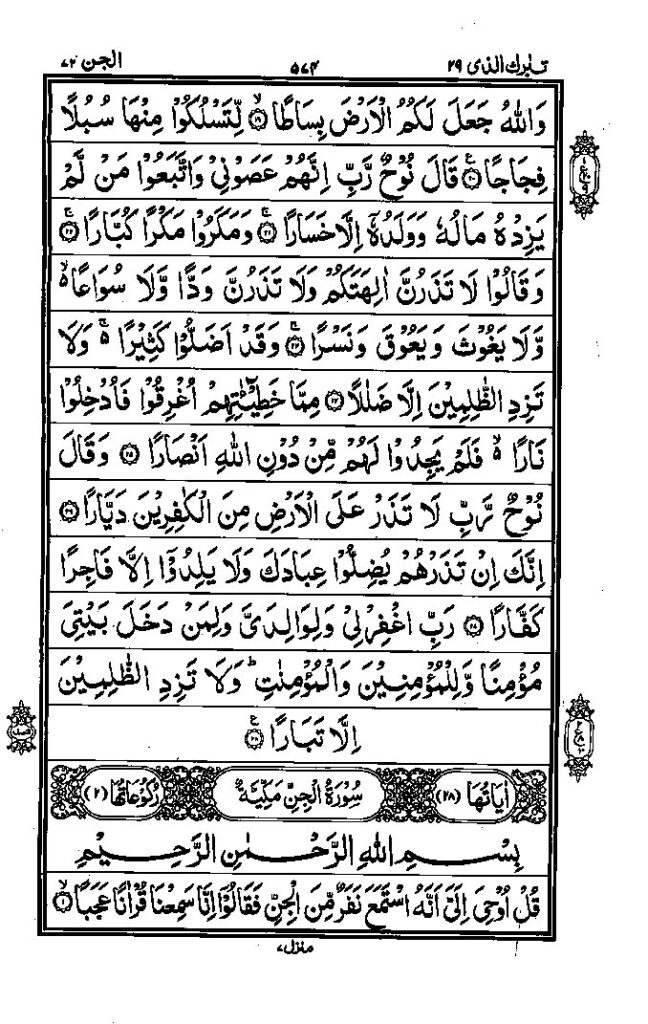 تبٰرك الذى ٢٩ ٥٧٤ الجن ٧٢
وَاللّٰهُ جَعَلَ لَكُمُ الْاَرْضَ بِسَاطًا ۙ﴿۱۹﴾ لِّتَسْلُكُوْا مِنْهَا سُبُلًا
فِجَاجًا ﴿۲۰﴾ ع قَالَ نُوْحٌ رَّبِّ اِنَّهُمْ عَصَوْنِيْ وَاتَّبَعُوْا مَنْ لَّمْ
يَزِدْهُ مَالُهٗ وَوَلَدُهٗۤ اِلَّا خَسَارًا ۚ﴿۲۱﴾ وَمَكَرُوْا مَكْرًا كُبَّارًا ۚ﴿۲۲﴾
وَقَالُوْا لَا تَذَرُنَّ اٰلِهَتَكُمْ وَلَا تَذَرُنَّ وَدًّا وَّلَا سُوَاعًا ۙ
وَّلَا يَغُوْثَ وَيَعُوْقَ وَنَسْرًا ۚ﴿۲۳﴾ وَقَدْ اَضَلُّوْا كَثِيْرًا ۚ وَلَا
تَزِدِ الظّٰلِمِيْنَ اِلَّا ضَلٰلًا ﴿۲۴﴾ مِمَّا خَطِيْٓـٰٔتِهِمْ اُغْرِقُوْا فَاُدْخِلُوْا
نَارًا ۙ فَلَمْ يَجِدُوْا لَهُمْ مِّنْ دُوْنِ اللّٰهِ اَنْصَارًا ﴿۲۵﴾ وَقَالَ
نُوْحٌ رَّبِّ لَا تَذَرْ عَلَى الْاَرْضِ مِنَ الْكٰفِرِيْنَ دَيَّارًا ﴿۲۶﴾
اِنَّكَ اِنْ تَذَرْهُمْ يُضِلُّوْا عِبَادَكَ وَلَا يَلِدُوْۤا اِلَّا فَاجِرًا
كَفَّارًا ﴿۲۷﴾ رَبِّ اغْفِرْلِيْ وَلِوَالِدَيَّ وَلِمَنْ دَخَلَ بَيْتِيَ
مُؤْمِنًا وَّلِلْمُؤْمِنِيْنَ وَالْمُؤْمِنٰتِ ؕ وَلَا تَزِدِ الظّٰلِمِيْنَ
اِلَّا تَبَارًا ﴿۲۸﴾ ع
اٰيَاتُهَا (٢٨) سُوْرَةُ الْجِنِّ مَكِّيَّةٌ رُكُوْعَاتُهَا (٢)
بِسْمِ اللّٰهِ الرَّحْمٰنِ الرَّحِيْمِ
قُلْ اُوْحِيَ اِلَيَّ اَنَّهُ اسْتَمَعَ نَفَرٌ مِّنَ الْجِنِّ فَقَالُوْۤا اِنَّا سَمِعْنَا قُرْاٰنًا عَجَبًا ۙ﴿۱﴾
منزل ٧